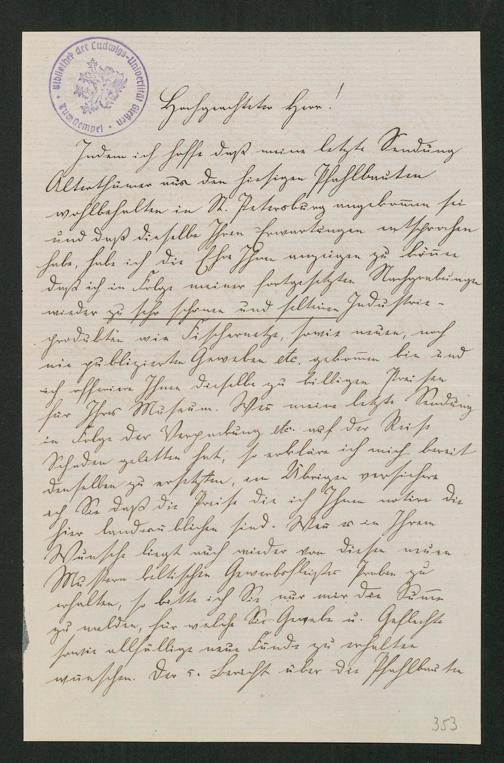 Bibliothek der Ludwigs-Universität Gießen
Hochgeachteter Herr!
Indem ich hoffe daß meine letzte Sendung
Alterthümer aus den hiesigen Pfahlbauten
wohlbehalten in St. Petersburg angekommen sei
und daß dieselbe Ihren Erwartungen entsprochen
habe, habe ich die Ehre Ihnen anzeigen zu können
daß ich in Folge meiner fortgesetzten Nachgrabungen
wieder zu sehr schönen und seltenen Industrie-
produkten wie Fischernetze, sowie neuen, noch
nie publizierten Geweben etc. gekommen bin und
ich offerire Ihnen dieselbe zu billigen Preisen
für Ihres Museum. Wenn meine letzte Sendung
in Folge der Verpackung etc. auf der Reise
Schaden gelitten hat, so erkläre ich mich bereit
denselben zu ersetzten, im Übrigen versichere
ich Sie daß die Preise die ich Ihnen notire die
hier landesüblichen sind. Wenn es in Ihrem
Wunsche liegt auch wieder von diesen neuen
Mustern keltischen Gewerbefleißes Proben zu
erhalten, so bitte ich Sie nur mir die Summe
zu melden, für welche Sie Gewebe u. Geflechte
sowie allfällige neue Funde zu erhalten
wünschen. Der 5. Bericht über die Pfahlbauten
353